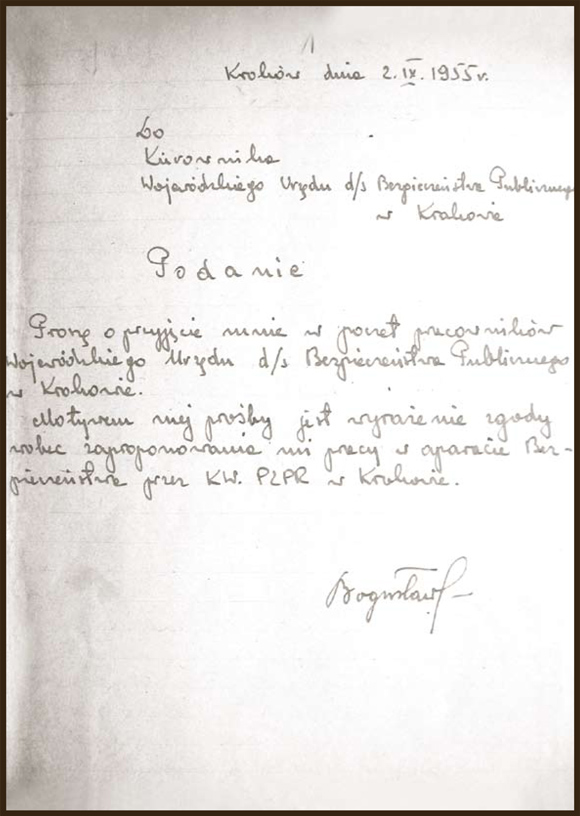 Kraków dnia 2.IX.1955r.
Do
Kierownika
Wojewódzkiego Urzędu d/s Bezpieczeństwa Publicznego
w Krakowie
Podanie
Proszę o przyjęcie mnie w poczet pracowników
Wojewódzkiego Urzędu d/s Bezpieczeństwa Publicznego
w Krakowie.
Motywem mej prośby jest wyrażenie zgody
wobec zaproponowania mi pracy w aparacie Bez-
pieczeństwa przez KW. PZPR w Krakowie.
Bogusław